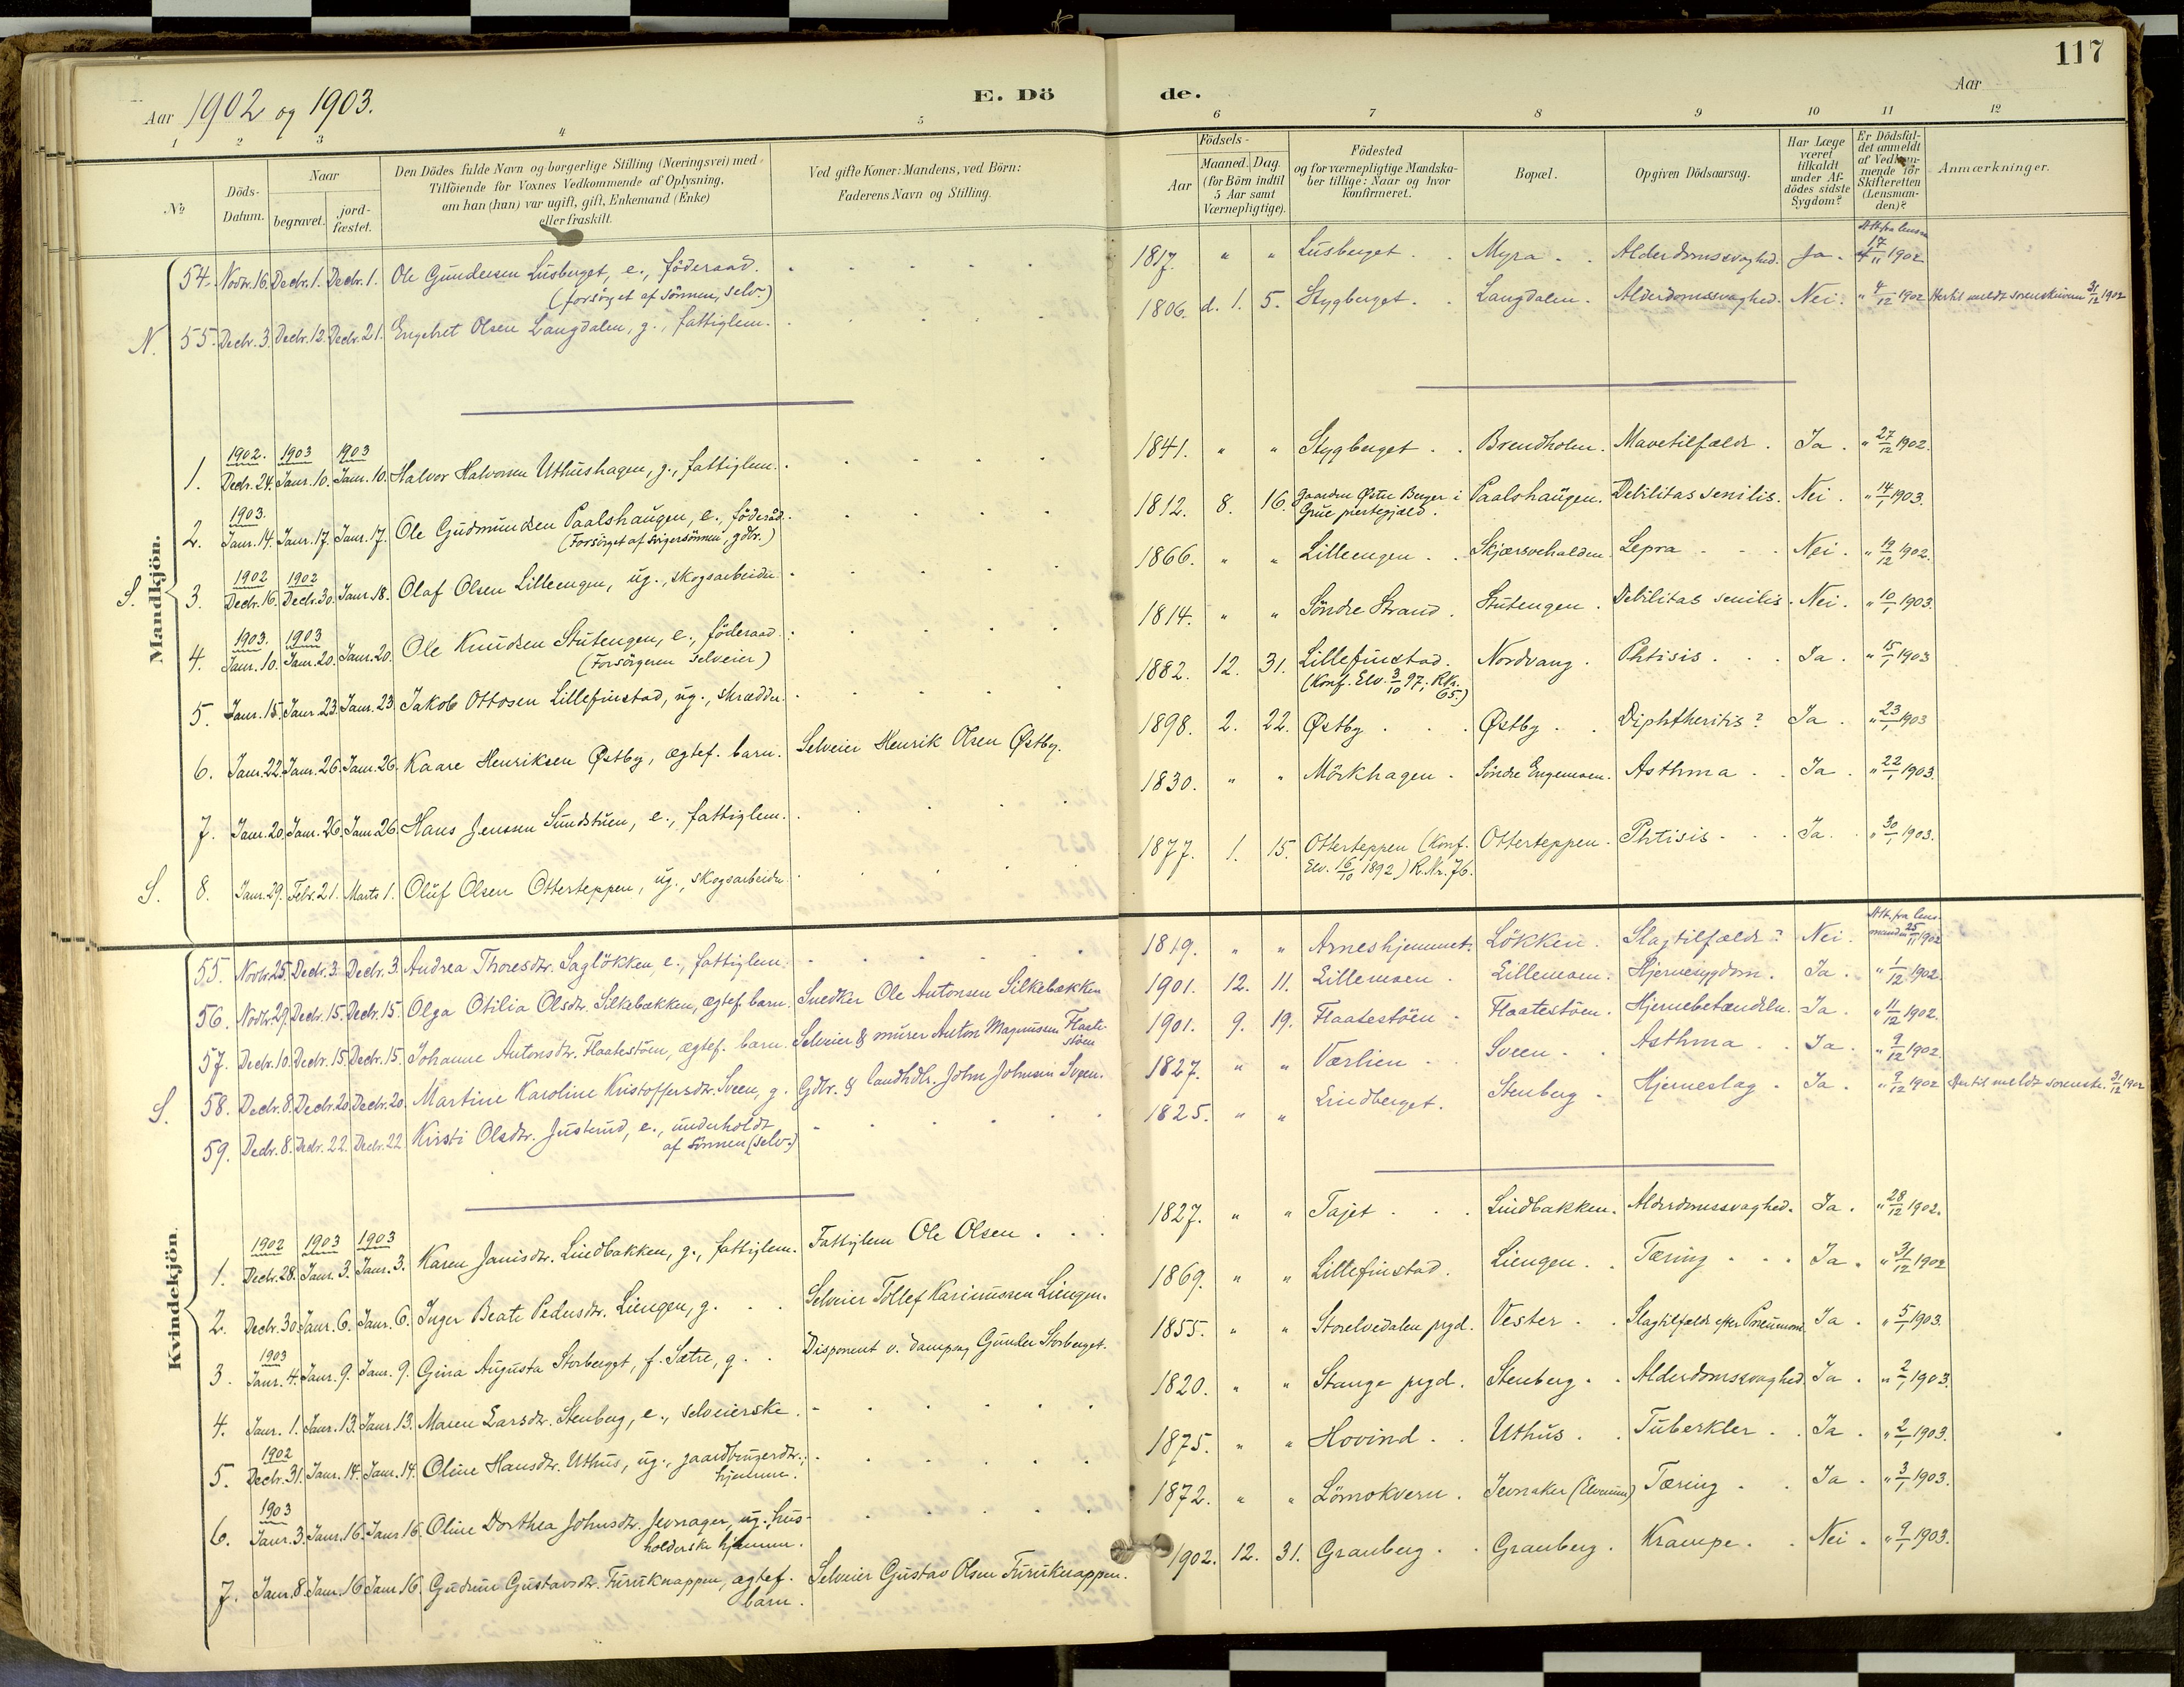 117
Aar 1902 og 1903. E. Dö de. Aar
1 2 3 4 5 6 7 8 9 10 11 12
No
Döds-Datum.
Naar
begravet.
jord-fæstet.
Den Dödes fulde Navn og borgerlige Stilling (Næringsvei) med
Tilföiende for Voxnes Vedkommende af Oplysning,
om han (hun) var ugift, gift, Enkemand (Enke)
eller fraskilt.
Ved gifte Koner: Mandens, ved Börn:
Faderens Navn og Stilling.
Födsels-
Aar
Maaned. Dag.
(for Börn indtil
5 Aar samt
Værnepligtige).
Födested
og for værnepligtige Mandska-
ber tillige: Naar og hvor
konfirmeret.
Bopæl.
Opgiven Dödsaarsag.
Har Læge
været
tilkaldt
under Af-
dödes sidste
Sygdom?
Er Dödsfal-
det anmeldt
af Vedkom-
mende for
Skifteretten
(Lensman-
den)?
Anmærkninger.
Mandkjön.
54. Novbr. 16. Decbr. 1. Decbr. 1. Ole Gundersen Lusberget, e., föderaad. 1817. " " Lusberget. Myra. Alderdomssvaghed. Ja. Att. fra lensm. 17/11 1902
(forsörget af sönnen, selv.)
N. 55. Decbr. 3. Decbr. 12. Decbr. 21. Engebret Olsen Langdalen, g., fattiglem. 1806. d. 1. 5. Stygberget. Langdalen. Alderdomssvaghed. Nei. " 4/12 1902 Hertil meldt sorenskriveren 31/12 1902
1902. 1903 1903
1. Decbr. 24. Janr. 10. Janr. 10. Halvor Halvorsen Uthushagen, g., fattiglem. 1841. " " Stygberget. Brendholen. Mavetilfælde. Ja. " 27/12 1902.
1903.
2. Janr. 14. Janr. 17. Janr. 17. Ole Gudmundsen Paalshaugen, e., föderåd. 1812. 8. 16. Gaarden Østre Berger i Paalshaugen. Debilitas senilis. Nei. " 14/1 1903.
(Forsörget af svigersönnen, gdbr.) Grue præstegjæld.
1902 1902
S. 3. Decbr. 16. Decbr. 30. Janr. 18. Olaf Olsen Lilleengen, ug., skogsarbeider. 1866. " " Lilleengen. Skjærsvehalden. Lepra. Nei. " 19/12 1902.
1903. 1903
4. Janr. 10. Janr. 20. Janr. 20. Ole Knudsen Stutengen, e., föderaad. 1814. " " Söndre Strand. Stutengen. Debilitas senilis. Nei. " 10/1 1903.
(Forsörgeren selveier)
5. Janr. 15. Janr. 23. Janr. 23. Jakob Ottosen Lillefinstad, ug., skrædder. 1882. 12. 31. Lillefinstad. Nordvang. Phtisis. Ja. " 15/1 1903
(Konf. Elv. 3/10 97; R.Nr. 65.)
6. Janr. 22. Janr. 26. Janr. 26. Kaare Henriksen Østby, ægtef. barn. Selveier Henrik Olsen Østby. 1898. 2. 22. Østby. Østby. Diphtheritis? Ja. " 23/1 1903
7. Janr. 20. Janr. 26. Janr. 26. Hans Jenssen Sundstuen, e., fattiglem. 1830. " " Mörkhagen. Söndre Engemoen. Asthma. Ja. " 22/1 1903.
S. 8. Janr. 29. Febr. 21. Marts 1. Oluf Olsen Otterteppen, ug., skogsarbeider. 1877. 1. 15. Otterteppen (Konf. Otterteppen. Phtisis. Ja. " 30/1 1903.
Elv. 16/10 1892) R.Nr. 76.
Kvindekjön.
55. Novbr. 25. Decbr. 3. Decbr. 3. Andrea Thoresdtr. Saglökken, e., fattiglem. 1819. " " Arneshjemmet. Lökken. Slagtilfælde? Nei. Att. fra lensmanden 25/11 1902
56. Novbr. 29. Decbr. 15. Decbr. 15. Olga Otilia Olsdtr. Silkebækken, ægtef. barn. Snedker Ole Antonsen Silkebækken 1901. 12. 11. Lillemoen. Lillemoen. Hjernesygdom. Ja. " 1/12 1902.
57. Decbr. 10. Decbr. 15. Decbr. 15. Johanne Antonsdtr. Flaatestöen, ægtef. barn. Selveier & murer Anton Magnussen Flaatestöen 1901. 9. 19. Flaatestöen. Flaatestöen. Hjernebetændelse. Ja. " 11/12 1902.
S. 58. Decbr. 8. Decbr. 20. Decbr. 20. Martine Karoline Kristoffersdtr. Sveen, g. Gdbr. & landhdlr. John Johnsen Sveen. 1827. " " Værlien. Sveen. Asthma. Ja. " 9/12 1902.
59. Decbr. 8. Decbr. 22. Decbr. 22. Kirsti Olsdtr. Justerud, e., underholdt 1825. " " Lindberget. Stenberg. Hjerneslag. Ja. " 9/12 1902 Hertil meldt sorenskr. 31/12 1902
af sönnen (selv.)
1902 1903 1903
1. Decbr. 28. Janr. 3. Janr. 3. Karen Janisdtr. Lindbakken, g., fattiglem. Fattiglem Ole Olsen. 1827. " " Tajet. Lindbakken. Alderdomssvaghed. Ja. " 28/12 1902.
2. Decbr. 30. Janr. 6. Janr. 6. Inger Beate Pedersdtr. Liengen, g. Selveier Tollef Karinussen Liengen. 1869. " " Lillefinstad. Liengen. Tæring. Ja. " 31/12 1902
1903
3. Janr. 4. Janr. 9. Janr. 9. Gina Augusta Storberget, f. Sætre, g. Disponent v. dampsag Gunder Storberget. 1855. " " Storelvedalen prgd. Vester. Slagtilfælde efter Pneumoni Ja. " 5/1 1903.
4. Janr. 1. Janr. 13. Janr. 13. Maren Larsdtr. Stenberg, e., selveierske. 1820. " " Stange prgd. Stenberg. Alderdomssvaghed. Ja. " 2/1 1903.
1902
5. Decbr. 31. Janr. 14. Janr. 14. Oline Hansdtr. Uthus, ug., gaardbrugerdtr., 1875. " " Hovind. Uthus. Tuberkler. Ja. " 2/1 1903.
hjemme.
1903
6. Janr. 3. Janr. 16. Janr. 16. Oline Dorthea Johnsdtr. Jevnager, ug., hus- 1872. " " Lömokvern. Jevnaker (Elverum) Tæring. Ja. " 3/1 1903.
holderske hjemme.
7. Janr. 8. Janr. 16. Janr. 16. Gudrun Gustavsdtr. Furuknappen, ægtef. Selveier Gustav Olsen Furuknappen. 1902. 12. 31. Granberg. Granberg. Krampe. Nei. " 9/1 1903.
barn.